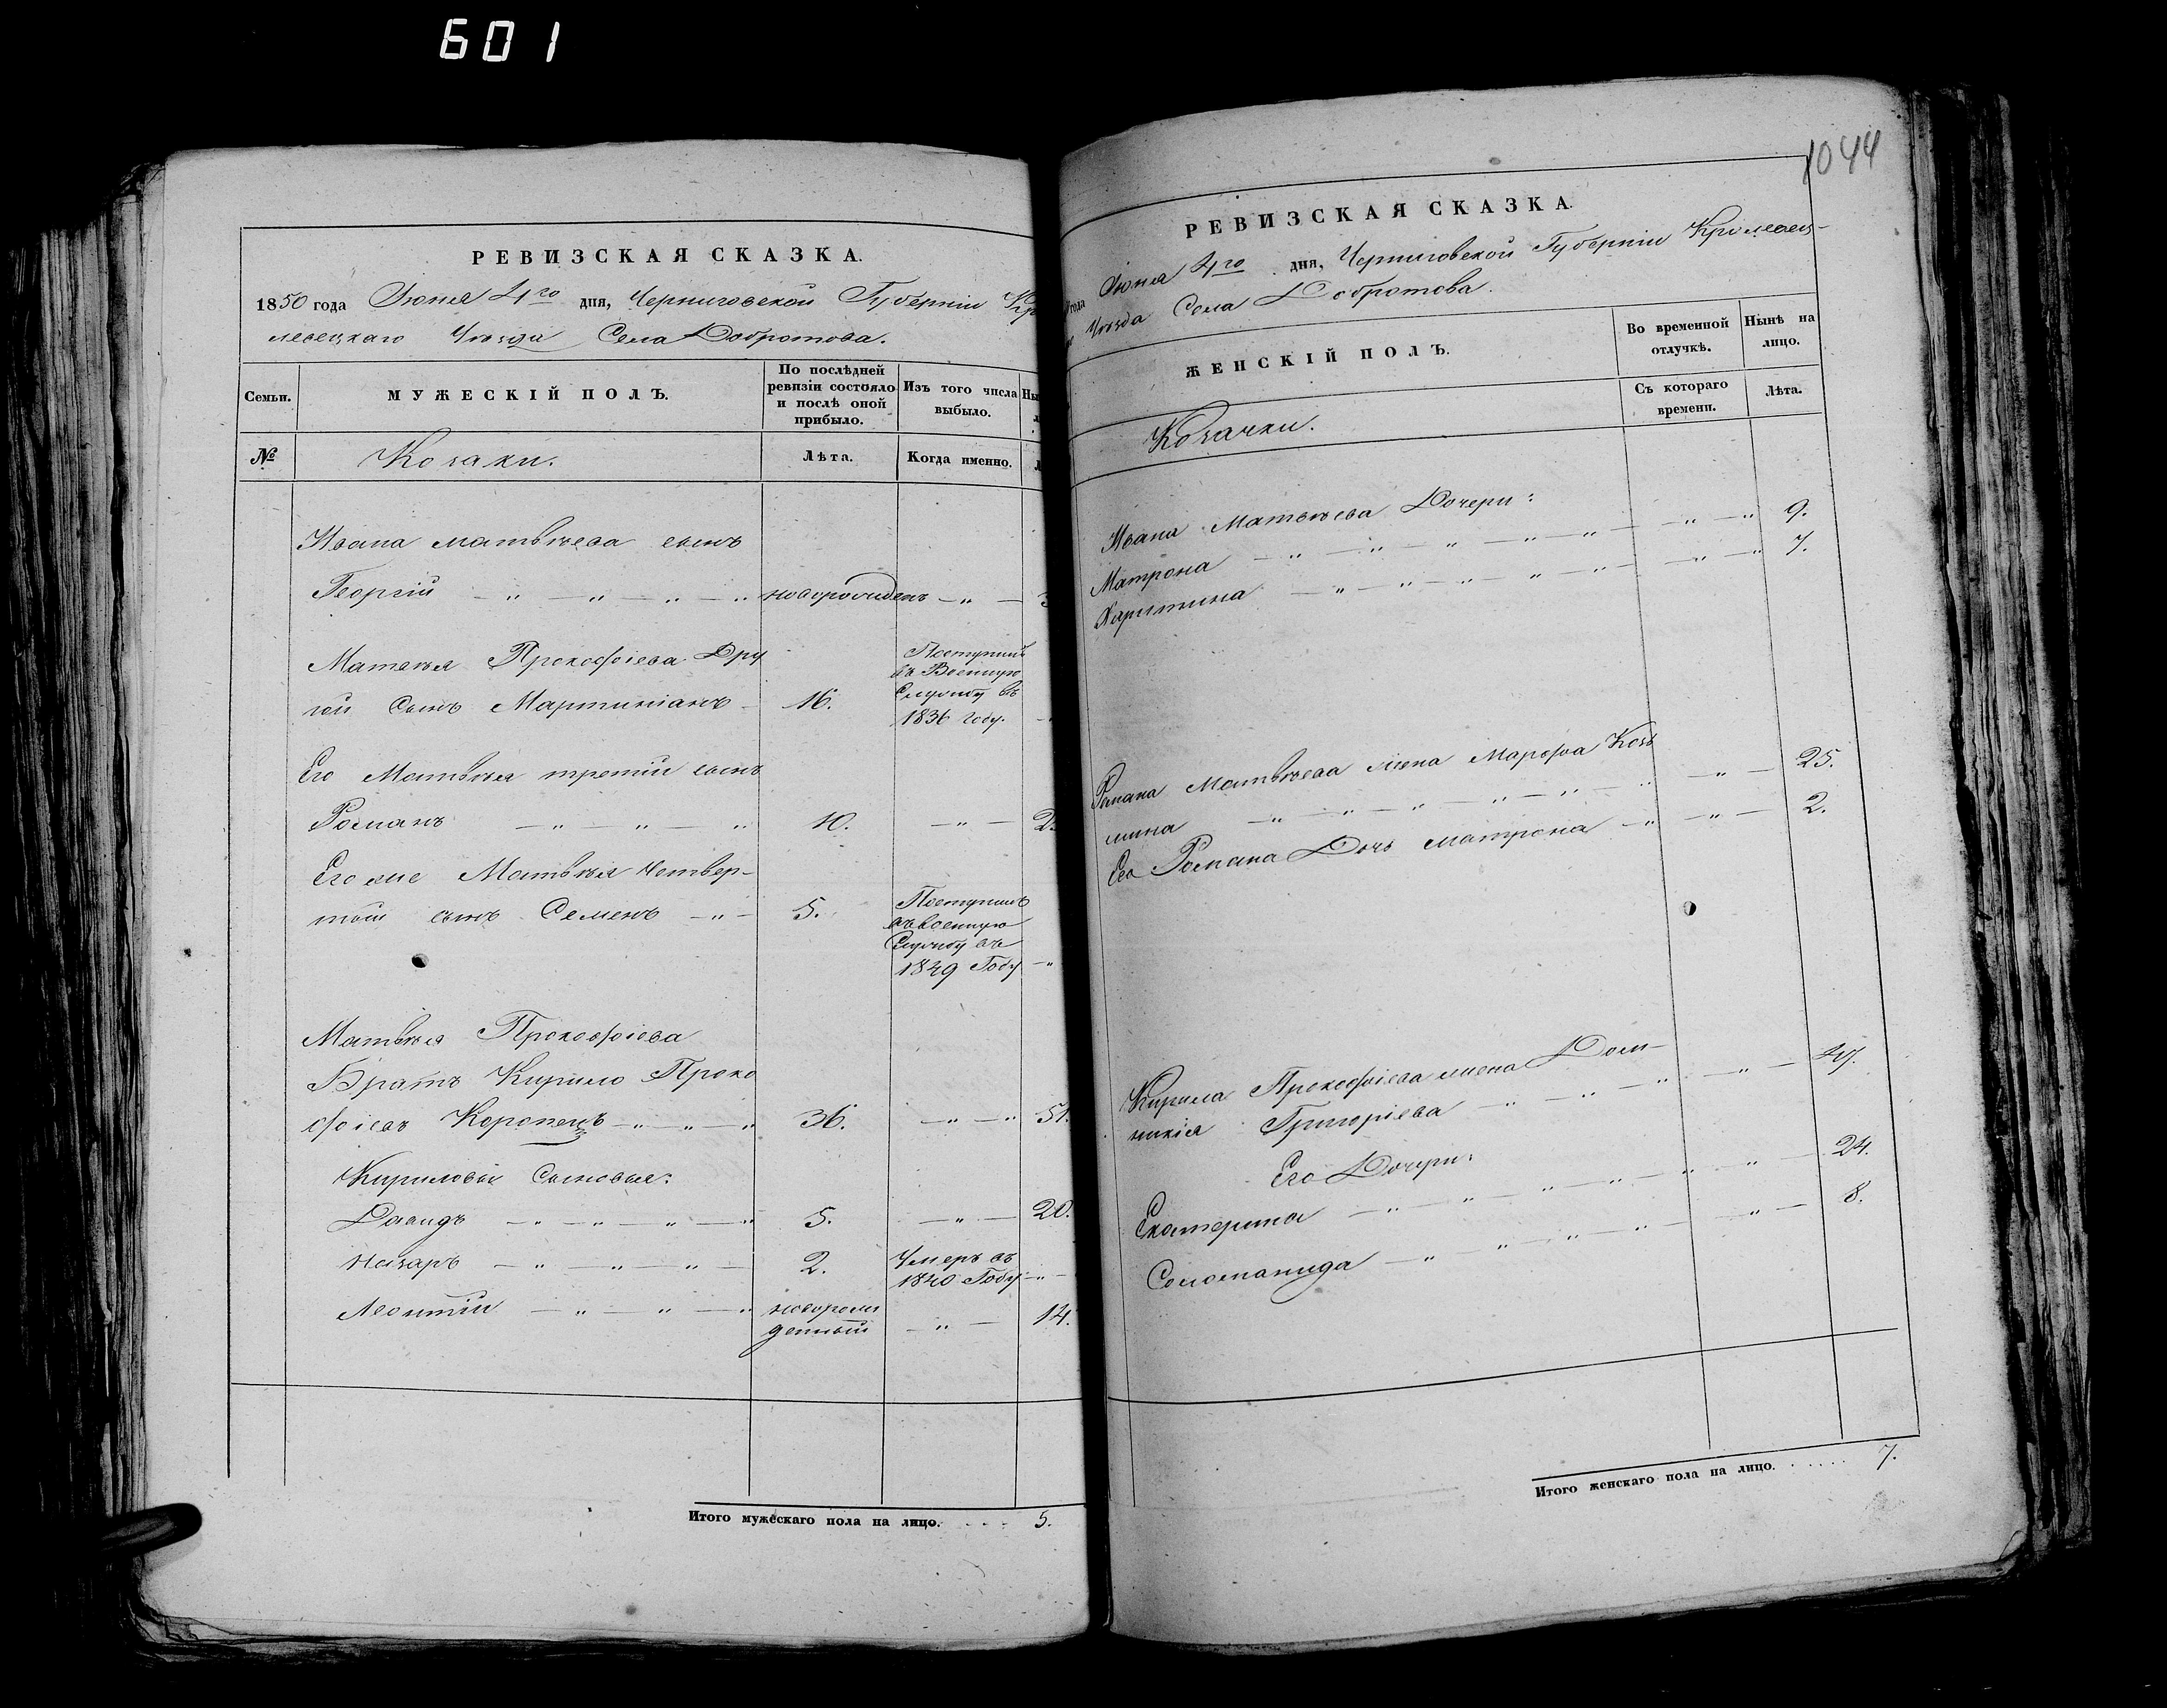 601
РЕВИЗСКАЯ СКАЗКА.
1850 года Июня 4го дня, Черниговской Губерніи Кр
левецкаго Уѣзда Села Добротова.
Семьи.
МУЖЕСКІЙ ПОЛЪ.
По послѣдней
ревизіи состояло
и послѣ оной
прибыло.
Изъ того числа
выбыло.
Ны
№
Козаки.
Лѣта.
Когда именно.
Ивана Матвѣева сынъ
Георгій — „ — „ — „ — „ новорожденъ — „ —
Матвѣя Прокофіева Дру
гой Сынъ Мартиніанъ 16.
Поступилъ
въ Военную
Службу въ
1836 Году.
Его Матвѣя третій сынъ
Романъ — „ — „ — „ 10. — „ — 2
Его же Матвѣя Четвер-
тый сынъ Семенъ — „ — 5.
Поступилъ
въ военную
Службу въ
1849 Году — „
Матвѣя Прокофіева
Братъ Кирило Проко
фіевъ Коропецъ — „ — „ — „ 36. — „ — „ 51.
Кириловы Сыновья:
Давидъ — „ — „ — „ — „ 5. — „ — 20.
Назаръ — „ — „ — „ — 2. Умеръ въ
1840 Году — „ —
Леонтій — „ — „ — „ новорож
денный — „ — 14.
Итого мужескаго пола на лицо. . . . 5.
1044
РЕВИЗСКАЯ СКАЗКА.
года Июня 4го дня, Черниговской Губерніи Кролевец-
Уѣзда Села Добротова.
ЖЕНСКІЙ ПОЛЪ.
Во временной
отлучкѣ.
Нынѣ на
лицо.
Съ котораго
времени.
Лѣта.
Козачки.
Ивана Матвѣева Дочери:
Матрона — „ — „ — „ — „ — „ — — „ — „ 9.
Харитина — „ — „ — „ — „ — „ — — „ — „ 7.
Романа Матвѣева жена Марфа Козь
мина — „ — „ — „ — „ — „ — „ — 25.
Его Романа Дочь Матрона — „ — „ — 2.
Кирила Прокофіева жена Дом-
никія Григоріева — „ — „ — „ — „ — 47.
Его Дочери:
Екатерина — „ — „ — „ — „ — „ — „ — 24.
Соломанида — „ — „ — „ — „ — „ — 8.
Итого женскаго пола на лицо. . . . . . 7.